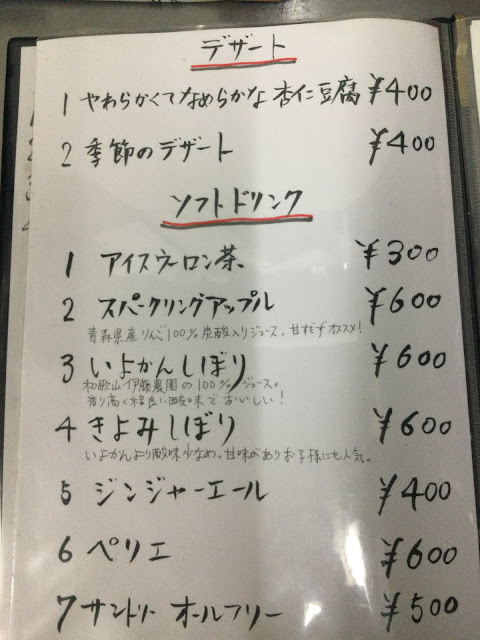 デザート
1 やわらかくてなめらかな杏仁豆腐 ¥400
2 季節のデザート ¥400
ソフトドリンク
1 アイスウーロン茶 ¥300
2 スパークリングアップル ¥600
青森県産りんご100%炭酸入りジュース。甘すぎずオススメ!
3 いよかんしぼり ¥600
和歌山 伊藤農園の100%ジュース。
香り高く程良い酸味でおいしい!
4 きよみしぼり ¥600
いよかんより酸味少なめ。甘味がありお子様にも人気。
5 ジンジャーエール ¥400
6 ペリエ ¥600
7 サントリー オールフリー ¥500